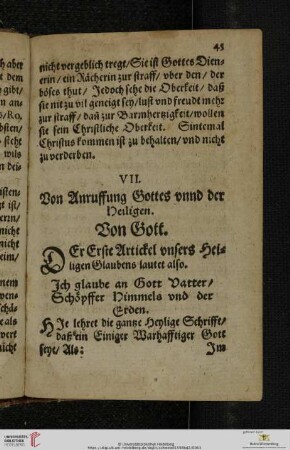 45
nicht vergeblich tregt/ Sie ist Gottes Dien-
erin/ ein Rächerin zur straff/ vber den/ der
böses thut/ Jedoch sehe die Oberkeit/ daß
sie nit zu vil geneigt sey/ lust vnd freudt mehr
zur straff/ dañ zur Barmhertzigkeit/ wöllen
sie sein Christliche Oberkeit. Sintemal
Christus kommen ist zu behalten/ vnd nicht
zu verderben.
VII.
Von Anruffung Gottes vnnd der
Heiligen.
Von Gott.
DEr Erste Artickel vnsers Hei-
ligen Glaubens lautet also.
Ich glaube an Gott Vatter/
Schöpffer Himmels vnd der
Erden.
HIe lehret die gantze Heylige Schrifft/
daß ein Einiger Warhafftiger Gott
seye/ Als: Im
UNIVERSITÄTS-
BIBLIOTHEK
HEIDELBERG
© Universitätsbibliothek Heidelberg